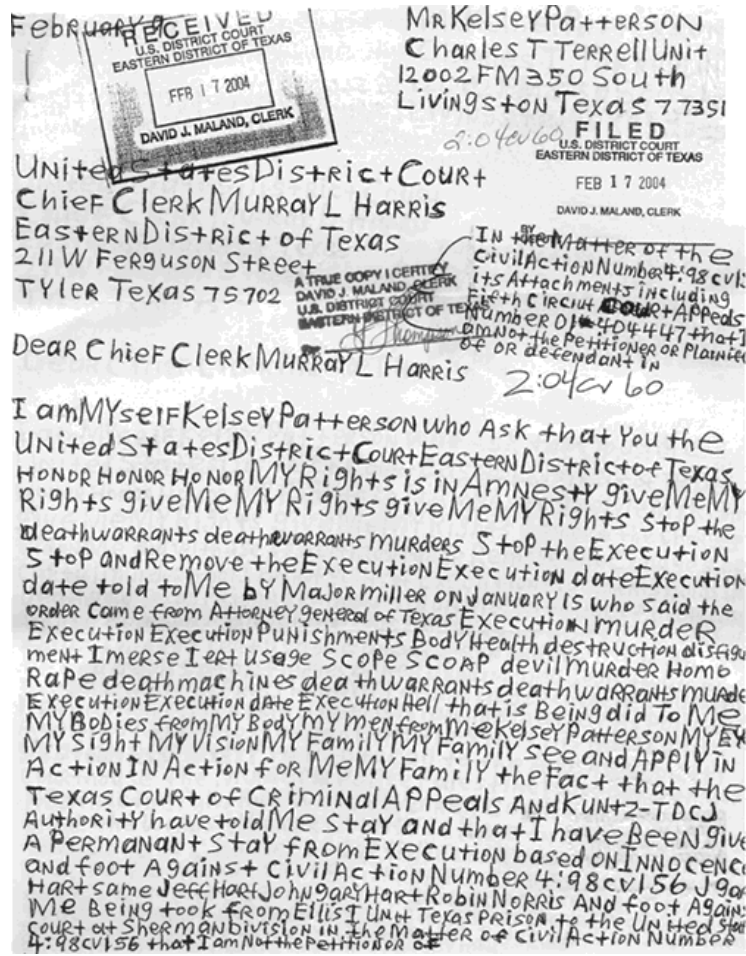 February 9
RECEIVED
U.S. DISTRICT COURT
EASTERN DISTRICT OF TEXAS
FEB 17 2004
DAVID J. MALAND, CLERK
MR Kelsey Patterson
Charles T Terrell Unit
12002 FM 350 South
Livingston Texas 77351
2:04cv60
FILED
U.S. DISTRICT COURT
EASTERN DISTRICT OF TEXAS
FEB 17 2004
DAVID J. MALAND, CLERK
BY
United States District Court
Chief Clerk Murray L Harris
Eastern District of Texas
211 W Ferguson Street
Tyler Texas 75702
A TRUE COPY I CERTIFY
DAVID J. MALAND, CLERK
U.S. DISTRICT COURT
EASTERN DISTRICT OF TEXAS
Thompson
In the Matter of the
Civil Action Number 4:98cv15
its Attachments including
Fifth Circuit Court Appeals
Number 01-404447 that I
am Not the Petitioner or Plaintiff
of OR defendant in
2:04cv60
Dear Chief Clerk Murray L Harris
I am MYself Kelsey Patterson who Ask that You the
United States District Court Eastern District of Texas
HONOR HONOR HONOR MY Rights is in Amnesty give Me MY
Rights give Me MY Rights give Me MY Rights Stop the
deathwarrants deathwarrants murders Stop the Execution
Stop and Remove the Execution Execution date Execution
date told to Me by Major miller on January 15 who said the
order came from Attorney general of Texas Execution murder
Execution Execution Punishments Body Health destruction disfigu
ment Imerse Iert Usage Scope Scoap devil murder Homo
Rape deathmachines deathwarrants deathwarrants murde
Execution Execution date Execution Hell that is Being did To Me
MY Bodies from MY Body my men from me Kelsey Patterson MY EY
MY Sight MY Vision MY Family MY Family see and APPly in
Action In Action for Me MY Family the Fact that the
Texas Court of Criminal APPeals And Kunt2-TDCJ
Authority have told Me stay and that I have Been give
A Permanant Stay from Execution based on Innocence
and foot Against Civil Action Number 4:98cv156 J gar
Hart same Jeff Hart John gary Hart Robin Norris And foot Again
Me Being took from Ellis I Unit Texas Prison to the United Stat
Court at Sherman Division in The Matter of Civil Action Number
4:98cv156 that I am Not the Petitionor of